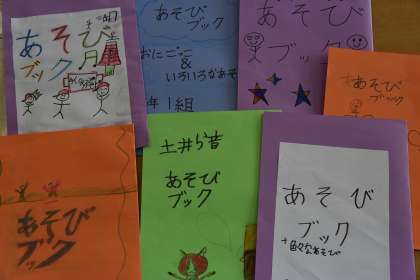 あそび
ブック
あそび
ブック
おにごっこ
&
いろいろなあそ
年1組
あそび
ブック
あそび
ブック
あそび
ブック
土井ら昔
あそび
ブック
あそび
ブック
+色々なあそび